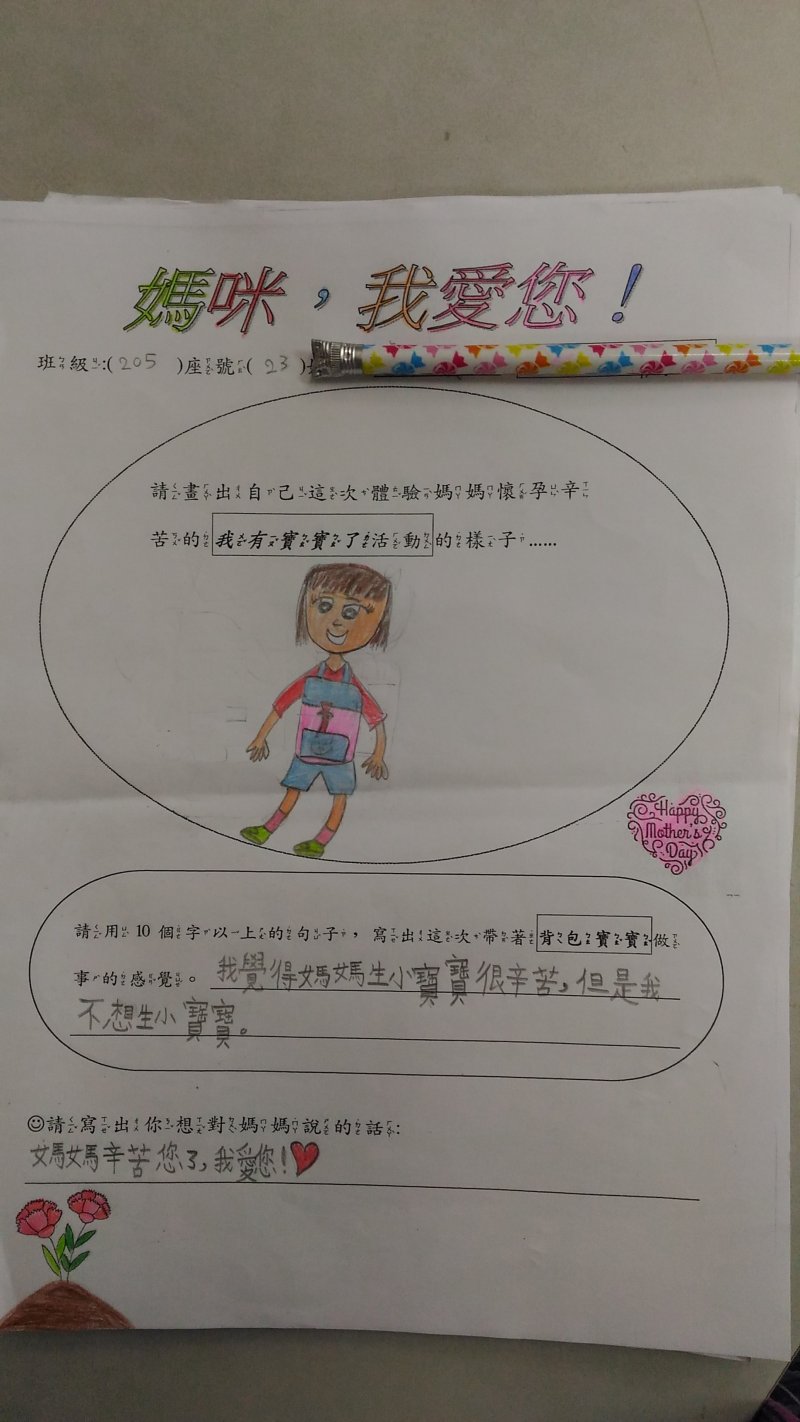 媽咪，我愛您！
班級:( 205 )座號( 23 )
請畫出自己這次體驗媽媽懷孕辛
苦的我有寶寶了活動的樣子……
Happy
Mother's
Day
請用 10 個字以上的句子，寫出這次帶著背包寶寶做
事的感覺。我覺得媽媽生小寶寶很辛苦,但是我
不想生小寶寶。
☺請寫出你想對媽媽說的話:
媽媽辛苦您了,我愛您!❤